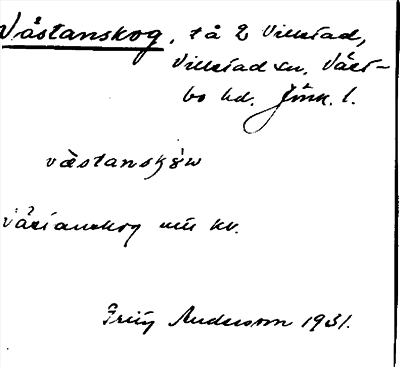 Västanskog, så 2 Villstad,
Villstad sn. Väst-
bo hd. Jönk. l.
västanskōw
Västanskog
kv.
Fritz Andersson 1931.